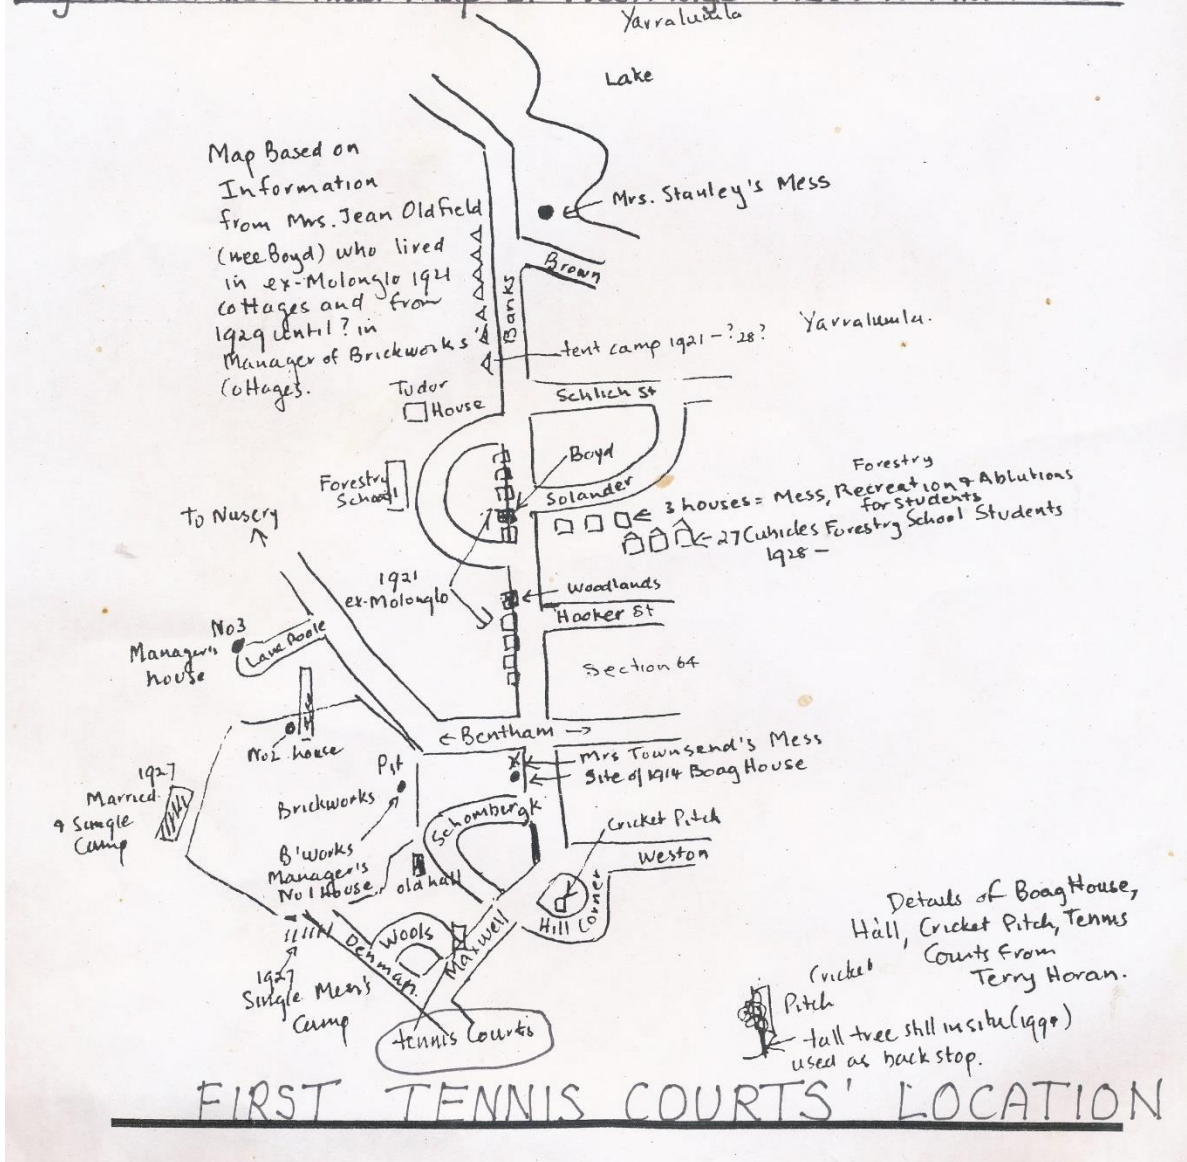 Yarralumla
Lake
Map Based on
Information
from Mrs. Jean Oldfield
(nee Boyd) who lived
in ex-Molonglo 1921
cottages and from
1929 until ? in
Manager of Brickworks'
Cottages.
Mrs. Stanley's Mess
Brown
Banks
tent camp 1921 - ?28?
Yarralumla.
Tudor
House
Schlich St
Boyd
Forestry
School
Solander
Forestry
3 houses = Mess, Recreation + Ablutions
for Students
27 Cubicles Forestry School Students
1928 -
To Nusery
1921
ex-Molonglo
Woodlands
Hooker St
No3
Manager's
house
Lane Poole
Section 64
No2 house
Bentham
Mrs Townsend's Mess
Site of 1914 Boag House
Pit
Brickworks
1927
Married
+ Single
Camp
Schombergk
Cricket Pitch
Weston
B'works
Manager's
No 1 House
old hall
Hill Corner
Wools
Denman.
Maxwell
1927
Single Men's
Camp
tennis Courts
Details of Boag House,
Hall, Cricket Pitch, Tennis
Courts from
Terry Horan.
Cricket
Pitch
tall tree still in situ (1990)
used as back stop.
FIRST TENNIS COURTS' LOCATION